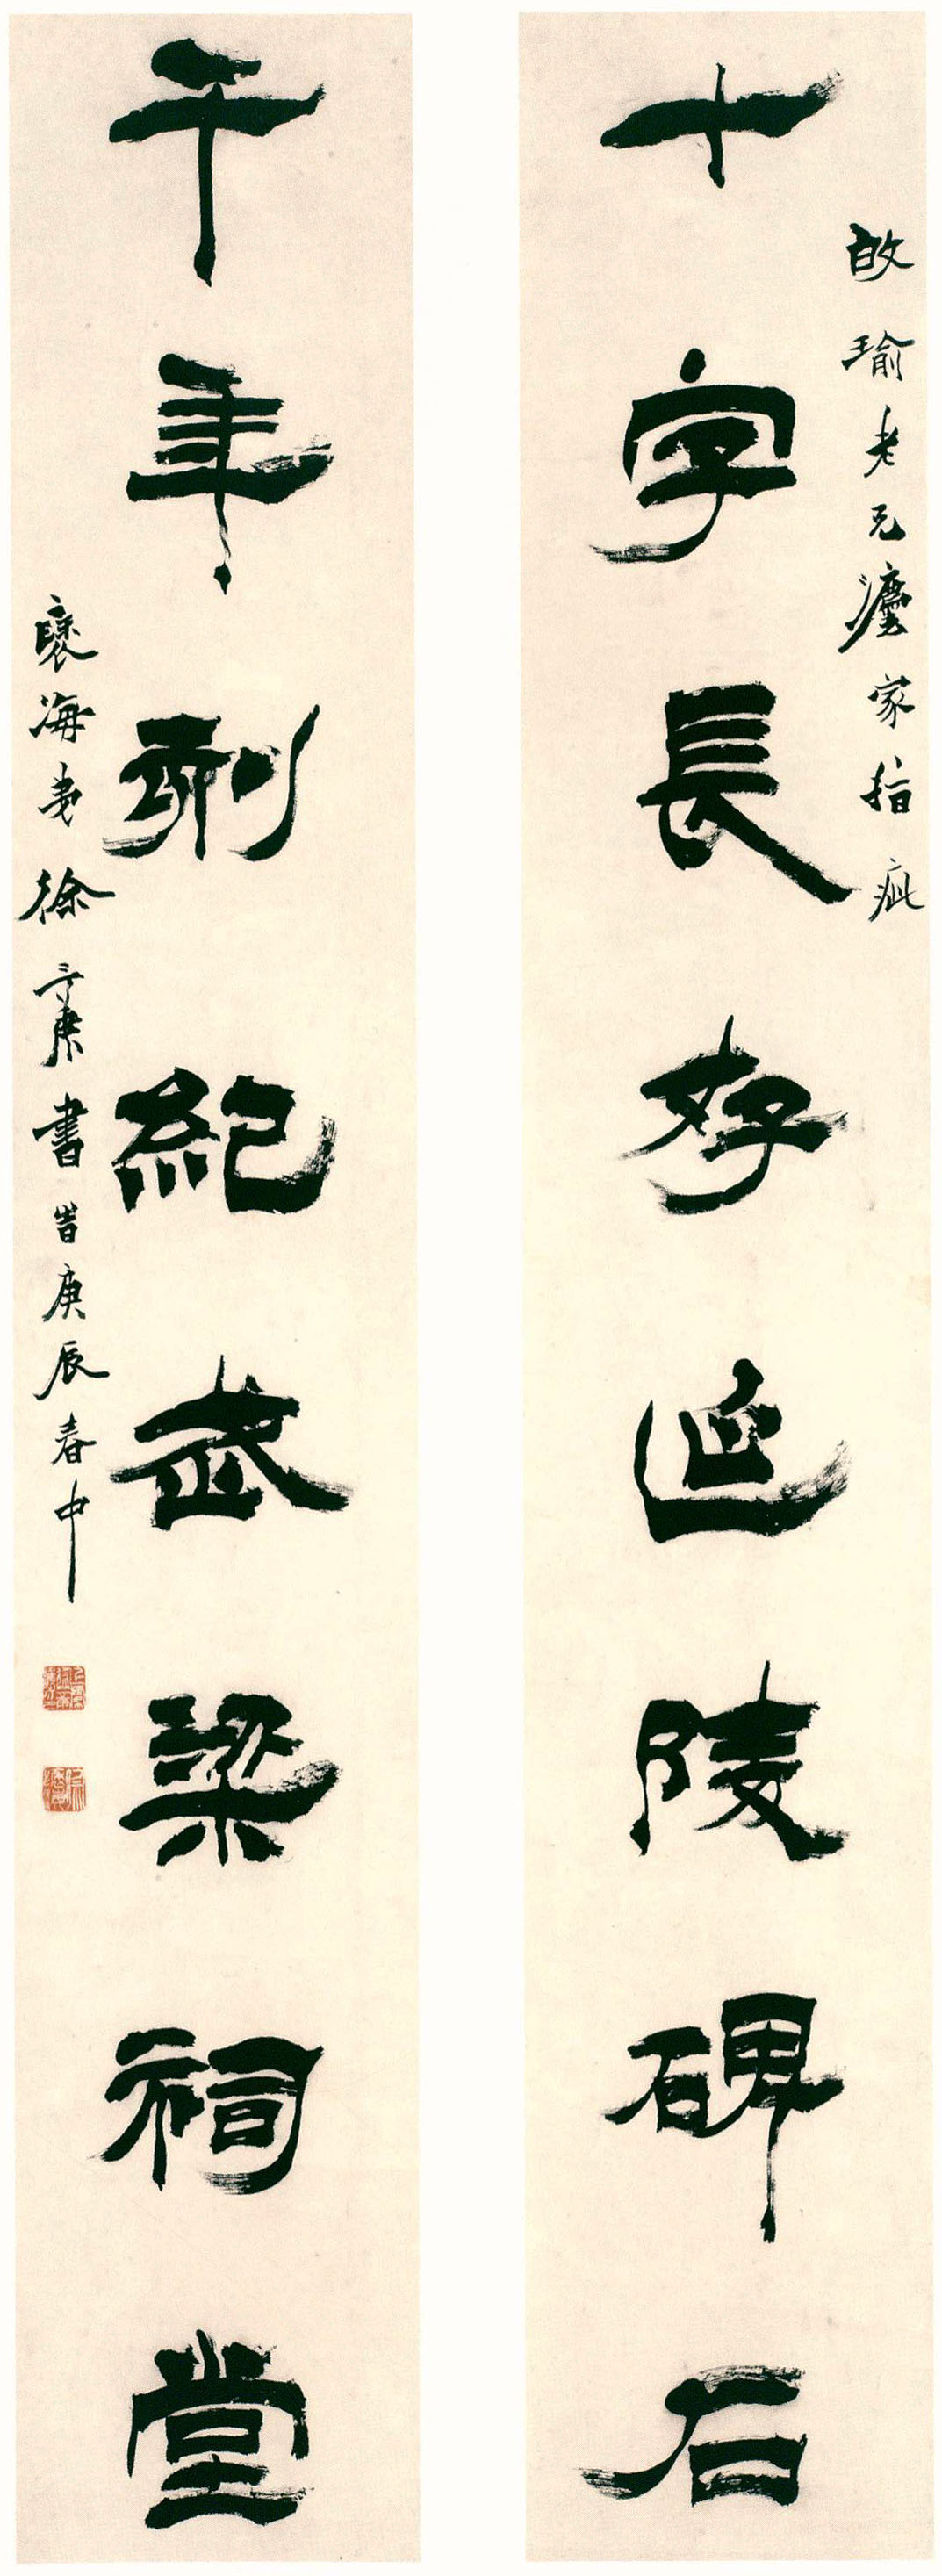 敀瑜老兄灋家指疵
十字長存延陵碑石
千年紀武梁祠堂
褎海弟徐三庚書旹庚辰春中